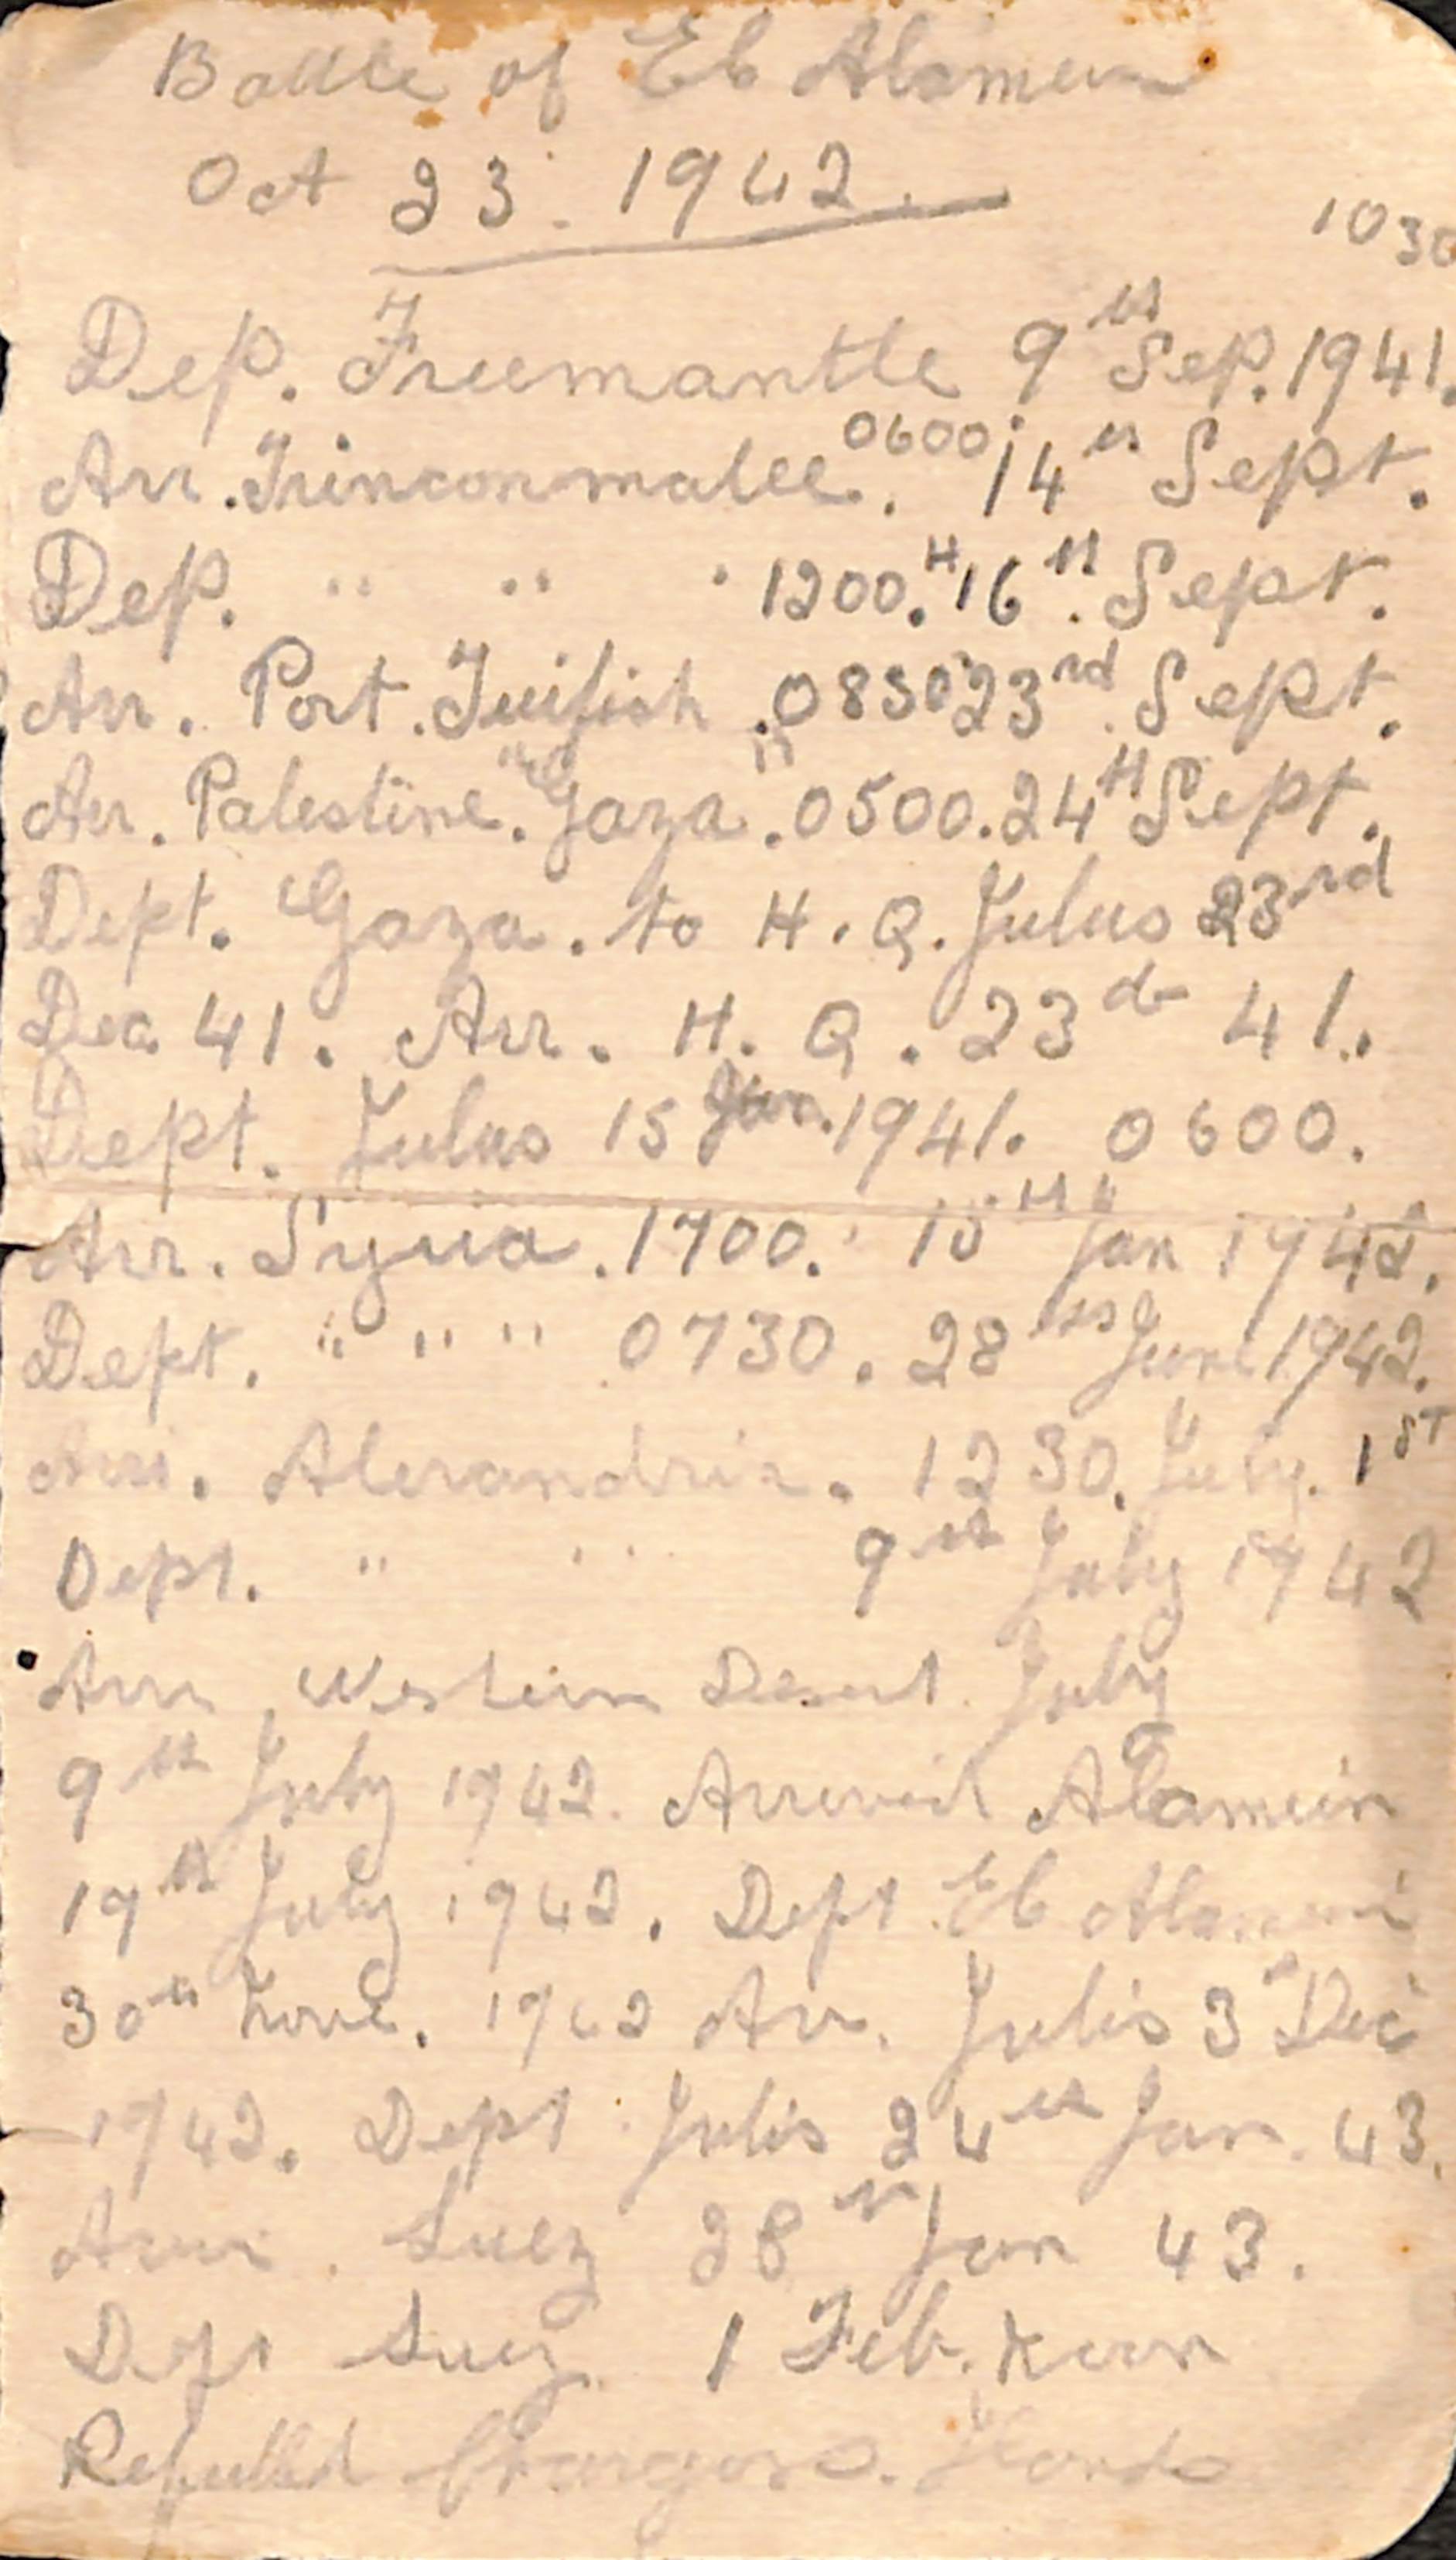 Battle of El Alamein
Oct 23. 1942.
1030
Dep. Freemantle 9th Sep. 1941.
Arr. Trinconmalee. 0600 14th Sept.
Dep. " " 1200. 16th Sept.
Arr. Port. Tuifich .0830 23rd Sept.
Arr. Palestine. "Gaza". 0500. 24th Sept.
Dept. Gaza. to H. Q. Julus 23rd
Dec 41. Arr. H. Q. 23d 41.
Dept. Julus 15 Jan. 1941. 0600.
Arr. Syria. 1700. 15th Jan 1942.
Dept. " " " 0730. 28th June 1942.
Arr. Alexandria. 1230. July. 1st
Dept. " " 9th July 1942
Arr. Western Desert. July
9th July 1942. Arrived Alamein
19th July 1942. Dept El Alamein
30th Nove. 1942 Arr. Julis 3 Dec
1942. Dept Julis 24th Jan. 43.
Arr. Suez 28th Jan 43.
Dept Suez. 1 Feb. Noon
Refuelled